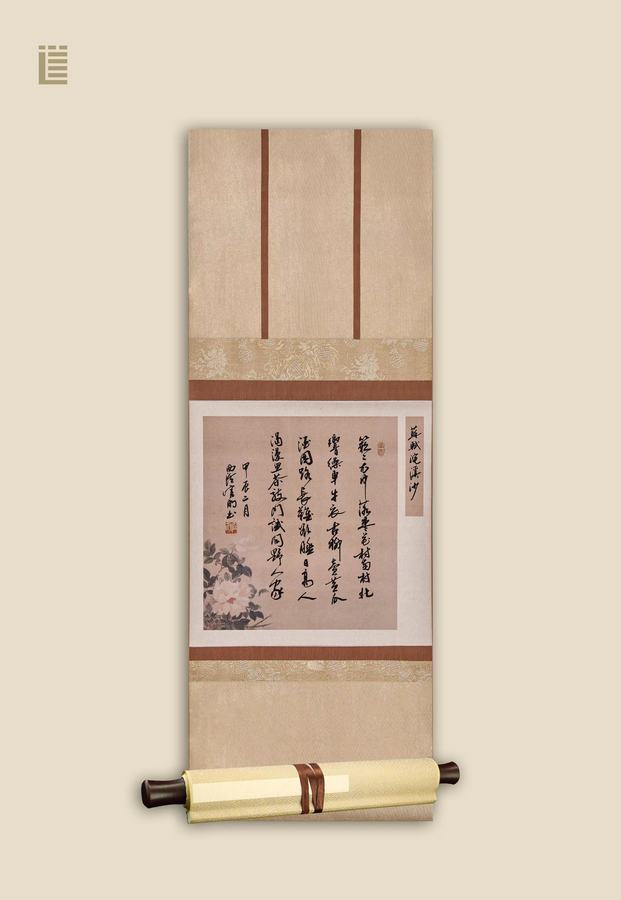 蘇軾浣溪沙
簌々衣巾落棗花村南村北
響繅車牛衣古柳賣黃瓜
酒困路長欲睡日高人
渴漫思茶敲門試問野人家
甲辰二月